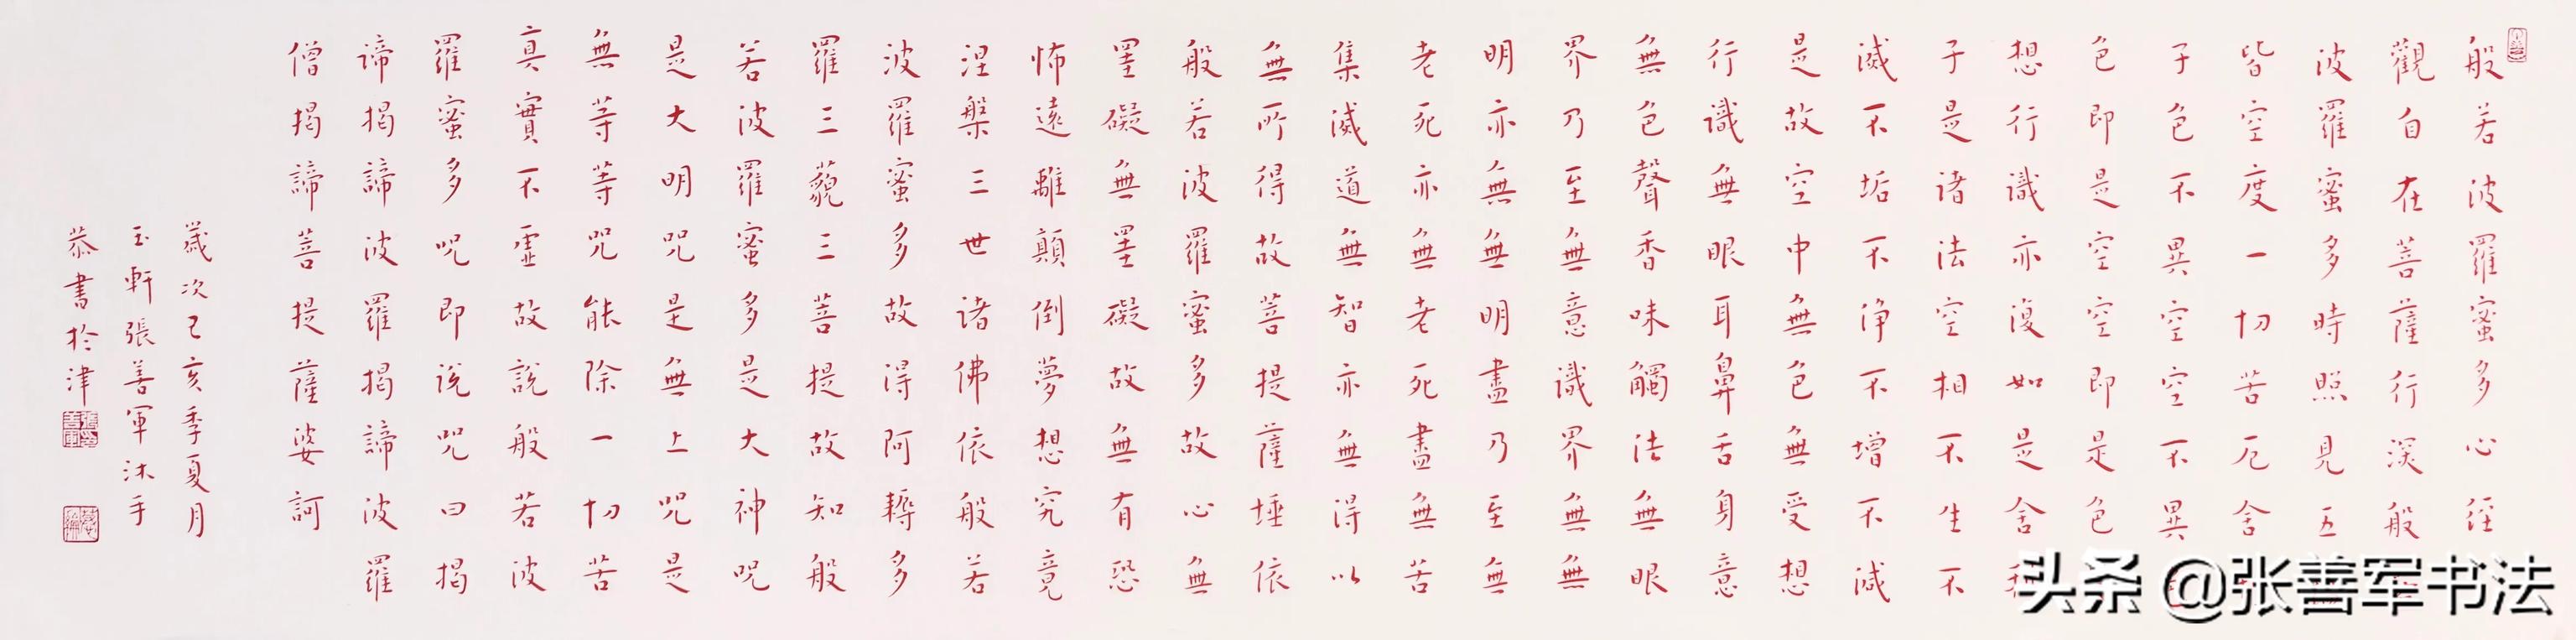 般若波羅蜜多心經
觀自在菩薩行深般
波羅蜜多時照見五
皆空度一切苦厄舍
子色不異空空不異
色即是空空即是色
想行識亦復如是舍
子是諸法空相不生不
滅不垢不淨不增不減
是故空中無色無受想
行識無眼耳鼻舌身意
無色聲香味觸法無眼
界乃至無意識界無無
明亦無無明盡乃至無
老死亦無老死盡無苦
集滅道無智亦無得以
無所得故菩提薩埵依
般若波羅蜜多故心無
罣礙無罣礙故無有恐
怖遠離顛倒夢想究竟
涅槃三世諸佛依般若
波羅蜜多故得阿耨多
羅三藐三菩提故知般
若波羅蜜多是大神咒
是大明咒是無上咒是
無等等咒能除一切苦
真實不虛故說般若波
羅蜜多咒即說咒曰揭
諦揭諦波羅揭諦波羅
僧揭諦菩提薩婆訶
歲次己亥季夏月
玉軒張善軍沐手
恭書於津
头条 @张善军书法